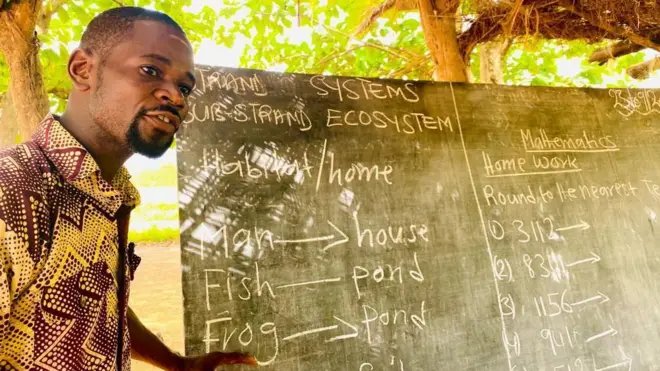 STRAND SYSTEMS
SUB-STRAND ECOSYSTEM
Habitat/home
Man → house
Fish — pond
Frog → pond
Mathematics
Home work
Round to the nearest
(1) 3112 →
(2)
(3) 1156 →